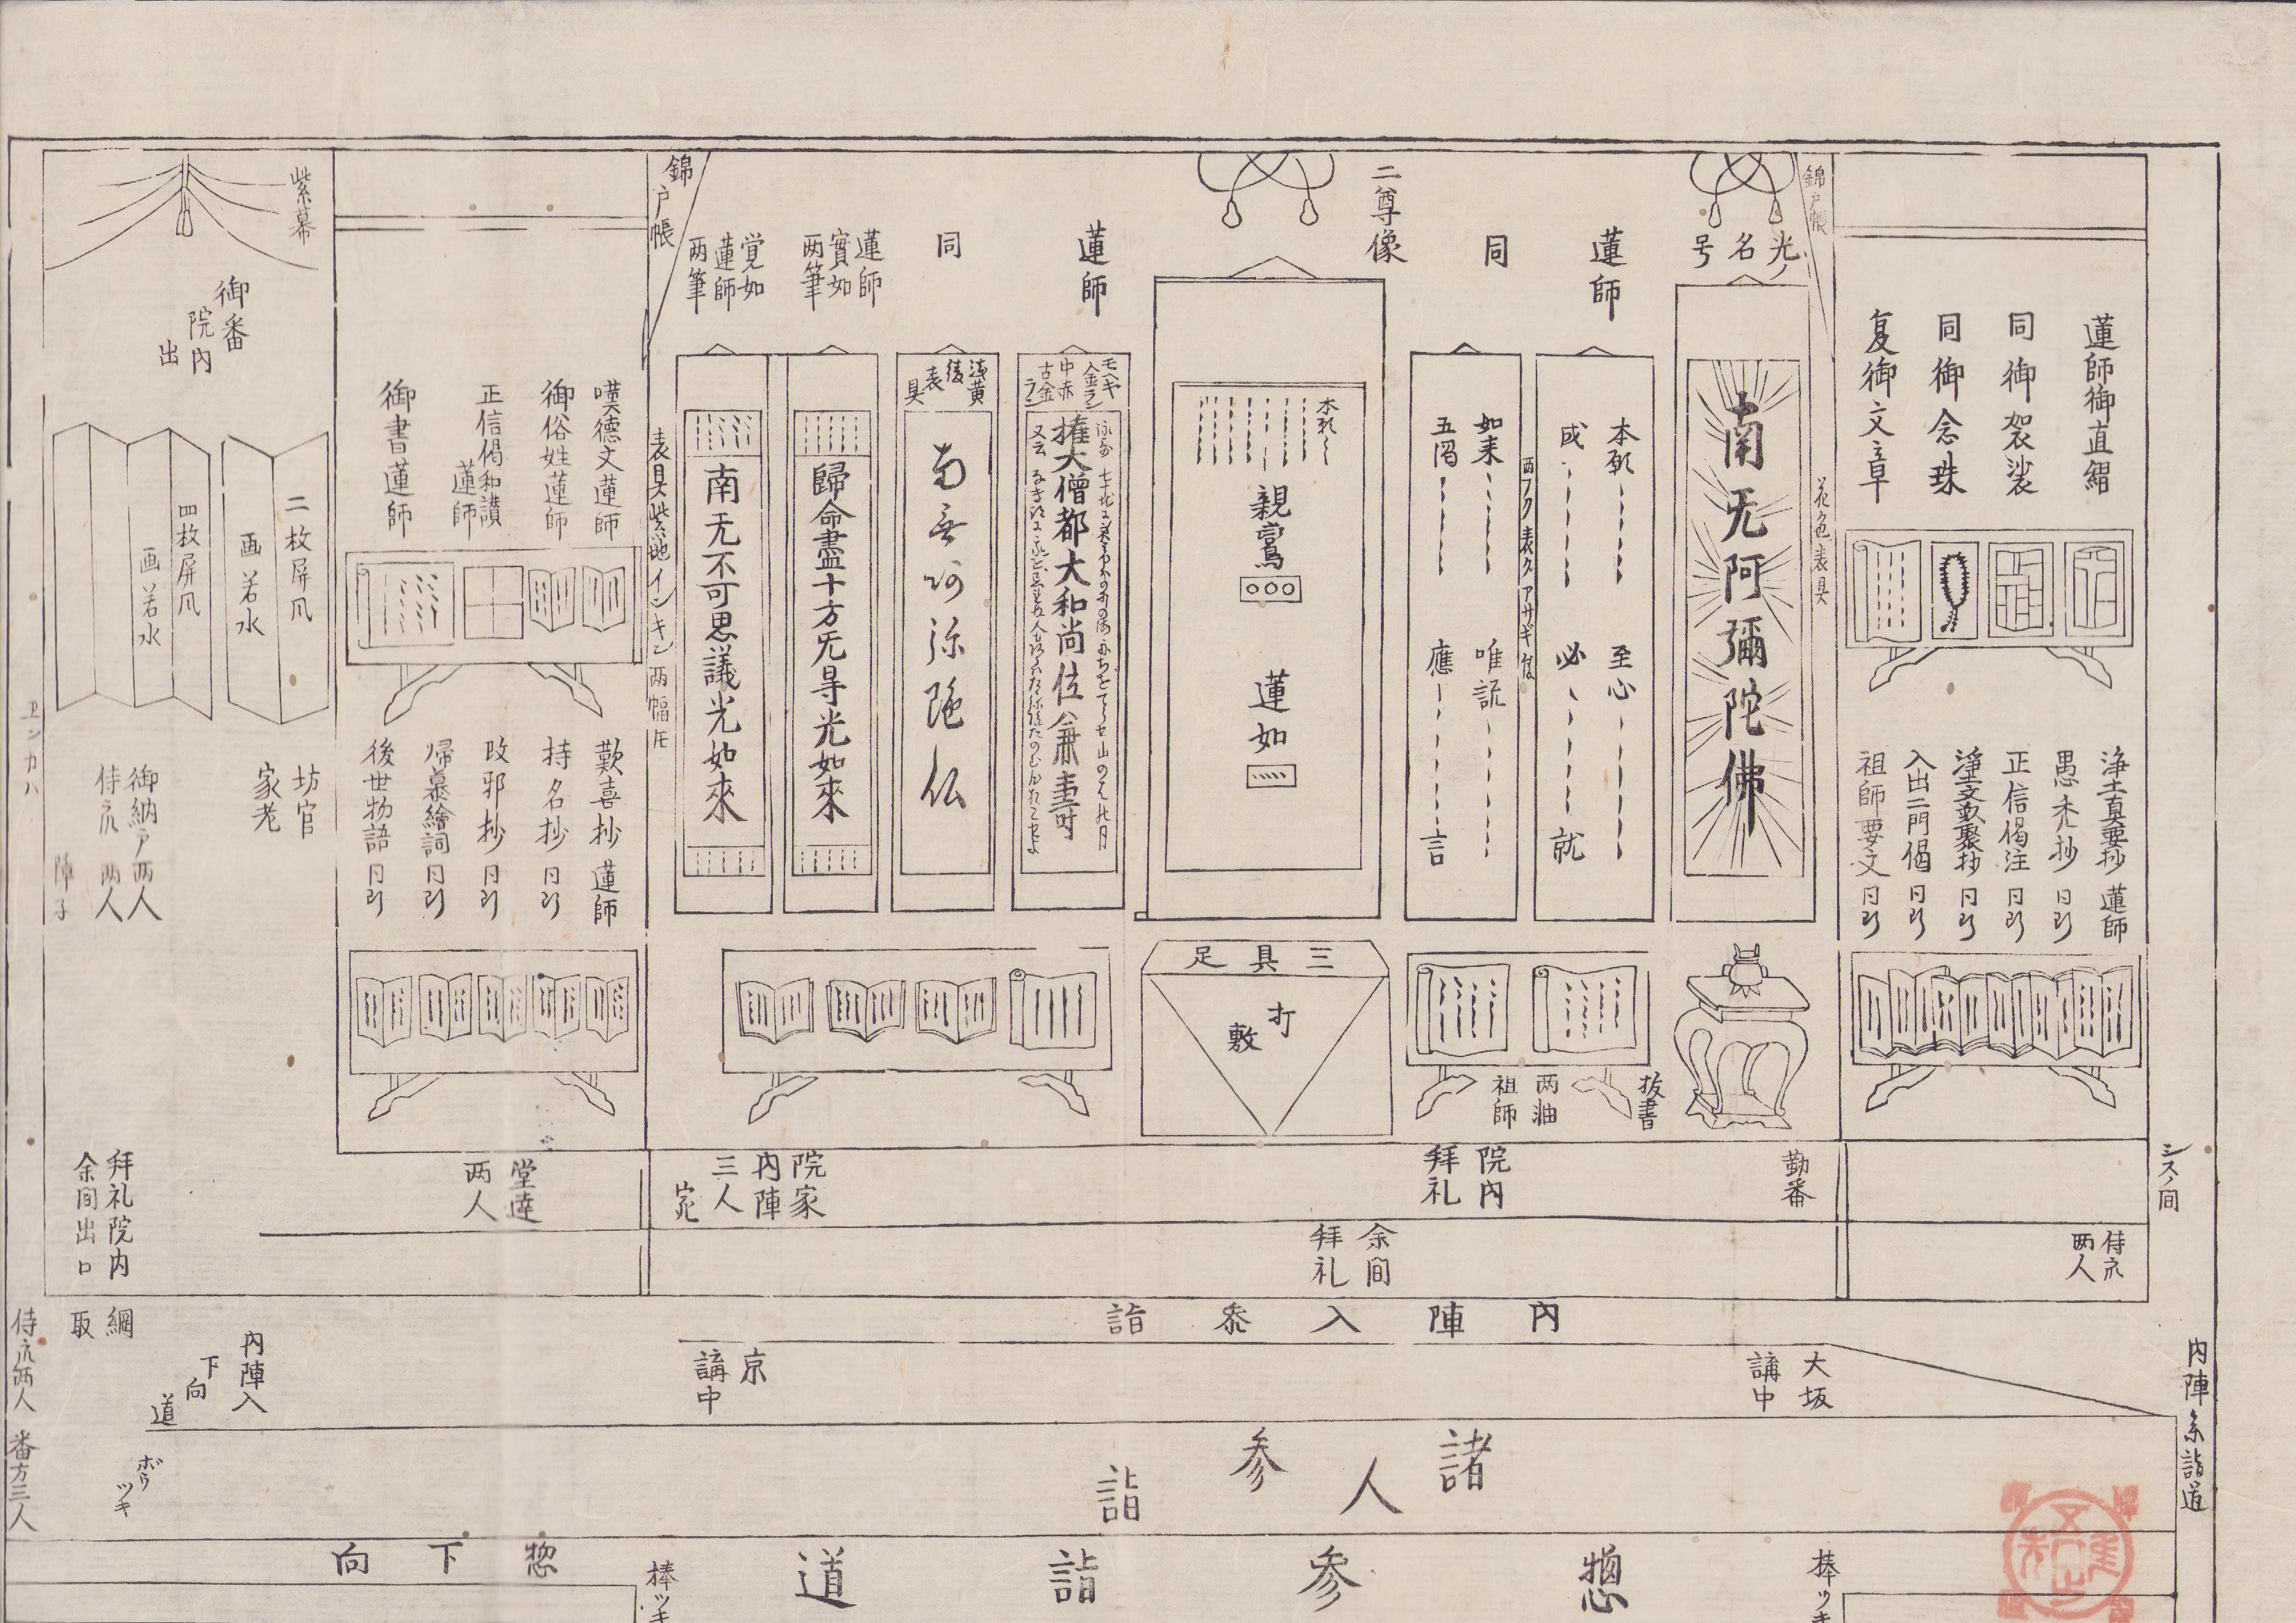 蓮師御直綴
同御袈裟
同御念珠
夏御文章
浄土真要抄 蓮師
愚禿抄 同断
正信偈注 同断
浄土文類聚抄 同断
入出二門偈 同断
祖師要文 同断
シスノ間
侍衆
両人
内陣参詣道
錦戸帳
花色表具
光ノ
名
号
南无阿彌陀佛
勤番
蓮師
本願
至心
成
必
就
両フク表具アサギ
同
如来
唯説
五濁
應
言
抜書
祖師
院内
拝礼
二尊像
本願
親鸞
蓮如
三具足
打敷
余間
拝礼
蓮師
モヘキ
金ラン
中赤
古金
ラン
権大僧都大和尚位兼壽
同
浅黄
後
表
具
南無阿弥陀仏
蓮師
實如
両筆
歸命盡十方无㝵光如來
覚如
蓮師
両筆
南无不可思議光如來
錦戸帳
表具紫地インキン両幅圧
院家
内陣
三人
嘆徳文蓮師
御俗姓蓮師
正信偈和讃
蓮師
御書蓮師
歎喜抄 蓮師
持名抄 同断
改邪抄 同断
帰慕繪詞 同断
後世物語 同断
堂達
両人
紫幕
御番
院内
出
二枚屏風
画若水
四枚屏風
画若水
坊官
家老
御納戸両人
侍衆 両人
障子
ヱンカハ
拝礼院内
余間出口
内陣入参詣
大坂
講中
京
講中
綱
取
内陣入
下向
道
侍衆両人
番方三人
ボウ
ツキ
諸人参詣
惣参詣道
惣下向
棒ツキ
棒ツキ